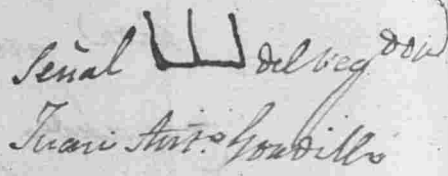 Señal del Reg.dor
Juan Anto. Gordillo